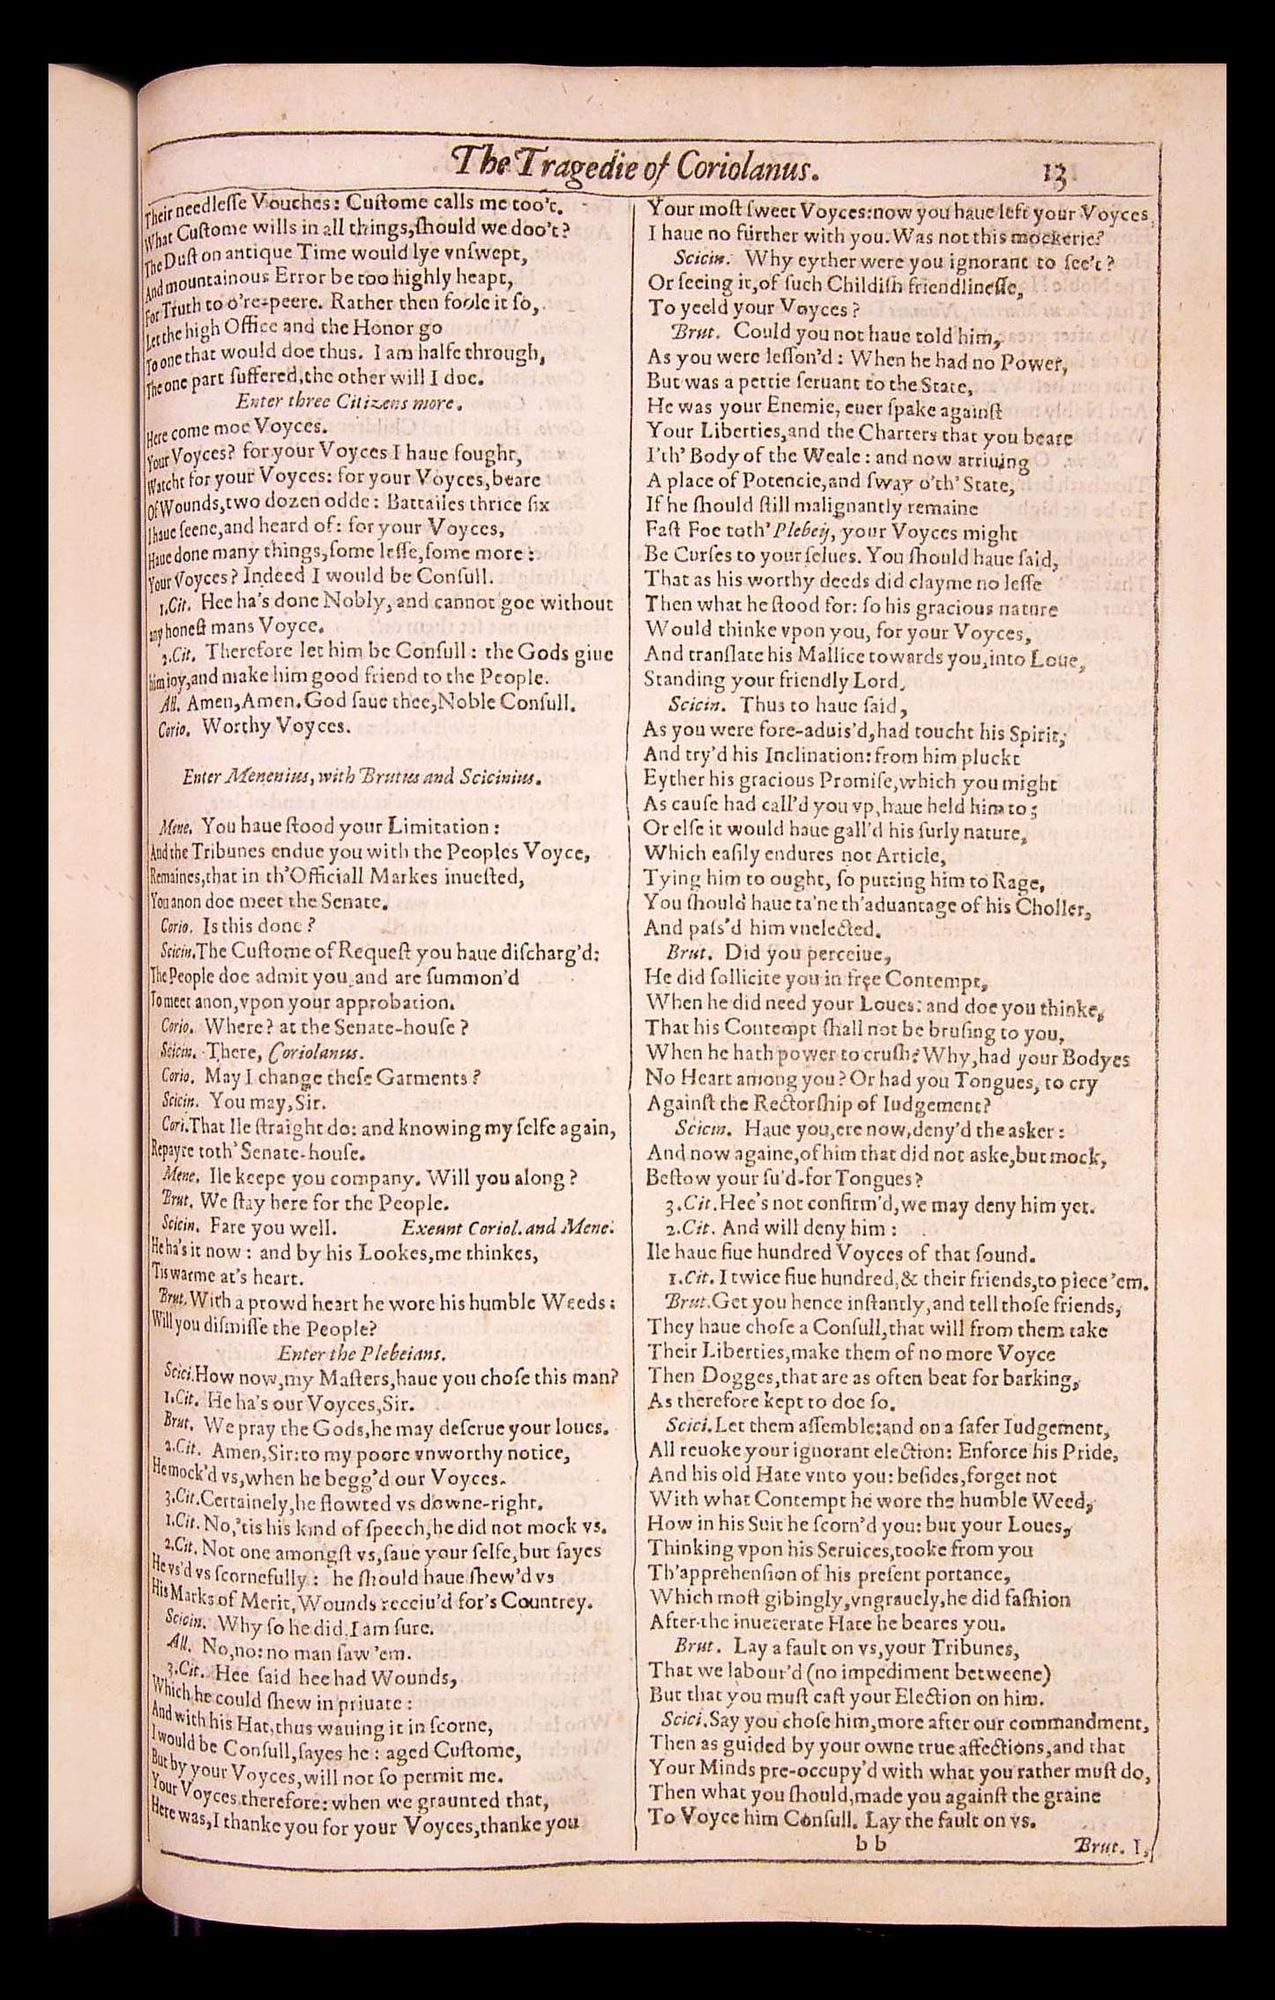 The Tragedie of Coriolanus. 13
Their needleſſe Vouches: Cuſtome calls me too't.
What Cuſtome wills in all things,ſhould we doo't?
The Duſt on antique Time would lye vnſwept,
And mountainous Error be too highly heapt,
For Truth to o're-peere. Rather then foole it ſo,
Let the high Office and the Honor go
To one that would doe thus. I am halfe through,
The one part ſuffered,the other will I doe.
Enter three Citizens more.
Here come moe Voyces.
Your Voyces? for your Voyces I haue fought,
Watcht for your Voyces: for your Voyces,beare
Of Wounds,two dozen odde: Battailes thrice ſix
I haue ſeene,and heard of: for your Voyces,
Haue done many things,ſome leſſe,ſome more:
Your Voyces? Indeed I would be Conſull.
1.Cit. Hee ha's done Nobly, and cannot goe without
any honeſt mans Voyce.
2.Cit. Therefore let him be Conſull: the Gods giue
him ioy,and make him good friend to the People.
All. Amen,Amen. God ſaue thee,Noble Conſull.
Corio. Worthy Voyces.
Enter Menenius, with Brutus and Scicinius.
Mene. You haue ſtood your Limitation:
And the Tribunes endue you with the Peoples Voyce,
Remaines,that in th'Officiall Markes inueſted,
You anon doe meet the Senate.
Corio. Is this done?
Scicin.The Cuſtome of Requeſt you haue diſcharg'd:
The People doe admit you,and are ſummon'd
To meet anon,vpon your approbation.
Corio. Where? at the Senate-houſe?
Scicin. There, Coriolanus.
Corio. May I change theſe Garments?
Scicin. You may,Sir.
Cori.That Ile ſtraight do: and knowing my ſelfe again,
Repayre toth' Senate-houſe.
Mene. Ile keepe you company. Will you along?
Brut. We ſtay here for the People.
Scicin. Fare you well. Exeunt Coriol. and Mene.
He ha's it now: and by his Lookes,me thinkes,
'Tis warme at's heart.
Brut.With a prowd heart he wore his humble Weeds:
Will you diſmiſſe the People?
Enter the Plebeians.
Scici.How now,my Maſters,haue you choſe this man?
1.Cit. He ha's our Voyces,Sir.
Brut. We pray the Gods,he may deſerue your loues.
2.Cit. Amen,Sir:to my poore vnworthy notice,
He mock'd vs,when he begg'd our Voyces.
3.Cit.Certainely,he flowted vs downe-right.
1.Cit. No,'tis his kind of ſpeech,he did not mock vs.
2.Cit. Not one amongſt vs,ſaue your ſelfe,but ſayes
He vs'd vs ſcornefully: he ſhould haue ſhew'd vs
His Marks of Merit,Wounds receiu'd for's Countrey.
Scicin. Why ſo he did,I am ſure.
All. No,no: no man ſaw 'em.
3.Cit. Hee ſaid hee had Wounds,
Which he could ſhew in priuate:
And with his Hat,thus wauing it in ſcorne,
I would be Conſull,ſayes he: aged Cuſtome,
But by your Voyces,will not ſo permit me.
Your Voyces therefore: when we graunted that,
Here was,I thanke you for your Voyces,thanke you
Your moſt ſweet Voyces:now you haue left your Voyces,
I haue no further with you. Was not this mockerie?
Scicin. Why eyther were you ignorant to ſee't?
Or ſeeing it,of ſuch Childiſh friendlineſſe,
To yeeld your Voyces?
Brut. Could you not haue told him,
As you were leſſon'd: When he had no Power,
But was a pettie ſeruant to the State,
He was your Enemie, euer ſpake againſt
Your Liberties,and the Charters that you beare
I'th' Body of the Weale: and now arriuing
A place of Potencie,and ſway o'th' State,
If he ſhould ſtill malignantly remaine
Faſt Foe toth' Plebeij, your Voyces might
Be Curſes to your ſelues. You ſhould haue ſaid,
That as his worthy deeds did clayme no leſſe
Then what he ſtood for: ſo his gracious nature
Would thinke vpon you, for your Voyces,
And tranſlate his Mallice towards you,into Loue,
Standing your friendly Lord.
Scicin. Thus to haue ſaid,
As you were fore-aduis'd,had toucht his Spirit,
And try'd his Inclination: from him pluckt
Eyther his gracious Promiſe,which you might
As cauſe had call'd you vp,haue held him to;
Or elſe it would haue gall'd his ſurly nature,
Which eaſily endures not Article,
Tying him to ought, ſo putting him to Rage,
You ſhould haue ta'ne th'aduantage of his Choller,
And paſs'd him vnelected.
Brut. Did you perceiue,
He did ſollicite you in free Contempt,
When he did need your Loues: and doe you thinke,
That his Contempt ſhall not be bruſing to you,
When he hath power to cruſh? Why,had your Bodyes
No Heart among you? Or had you Tongues, to cry
Againſt the Rectorſhip of Iudgement?
Scicin. Haue you,ere now,deny'd the asker:
And now againe,of him that did not aske,but mock,
Beſtow your ſu'd-for Tongues?
3.Cit. Hee's not confirm'd,we may deny him yet.
2.Cit. And will deny him:
Ile haue fiue hundred Voyces of that ſound.
1.Cit. I twice fiue hundred,& their friends,to piece 'em.
Brut.Get you hence inſtantly,and tell thoſe friends,
They haue choſe a Conſull,that will from them take
Their Liberties,make them of no more Voyce
Then Dogges,that are as often beat for barking,
As therefore kept to doe ſo.
Scici.Let them aſſemble:and on a ſafer Iudgement,
All reuoke your ignorant election: Enforce his Pride,
And his old Hate vnto you: beſides,forget not
With what Contempt he wore the humble Weed,
How in his Suit he ſcorn'd you: but your Loues,
Thinking vpon his Seruices,tooke from you
Th'apprehenſion of his preſent portance,
Which moſt gibingly,vngrauely,he did faſhion
After the inueterate Hate he beares you.
Brut. Lay a fault on vs,your Tribunes,
That we labour'd (no impediment betweene)
But that you muſt caſt your Election on him.
Scici.Say you choſe him,more after our commandment,
Then as guided by your owne true affections,and that
Your Minds pre-occupy'd with what you rather muſt do,
Then what you ſhould,made you againſt the graine
To Voyce him Conſull. Lay the fault on vs.
b b Brut. I,